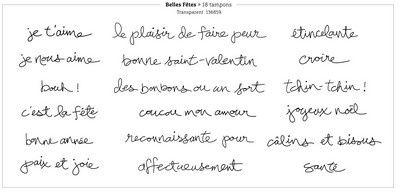 Belles Fêtes • 18 tampons
Transparent 136859
je t'aime
le plaisir de faire peur
étincelante
je nous aime
bonne saint-valentin
croire
bouh !
des bonbons ou un sort
tchin-tchin !
c'est la fête
coucou mon amour
joyeux noël
bonne année
reconnaissante pour
câlins et bisous
paix et joie
affectueusement
santé